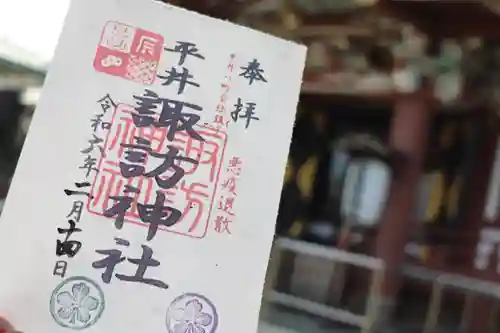 奉拝
悪疫退散
平井
諏訪神社
諏訪
神社
令和六年
二月
十四日
辰